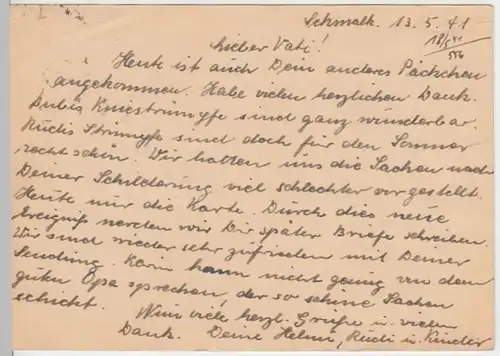 Schmalk. 13.5.41
18/5 41
556
Lieber Vati!
Heute ist auch Dein anderes Päckchen
angekommen. Habe vielen herzlichen Dank.
Kniestrümpfe sind ganz wunderbar.
Rudis Strümpfe sind doch für den Sommer
recht schön. Wir hatten uns die Sachen nach
Deiner Schilderung viel schlechter vorgestellt.
Heute nur die Karte. Durch dies neue
Ereigniß werden wir Dir später Briefe schreiben.
Wir sind wieder sehr zufrieden mit Deiner
Sendung. Karin kann nicht genug von dem
guten Opa sprechen, der so schöne Sachen
schickt.
Nun viele herzl. Grüße u. vielen
Dank. Deine Helmi, Rudi u. Kinder